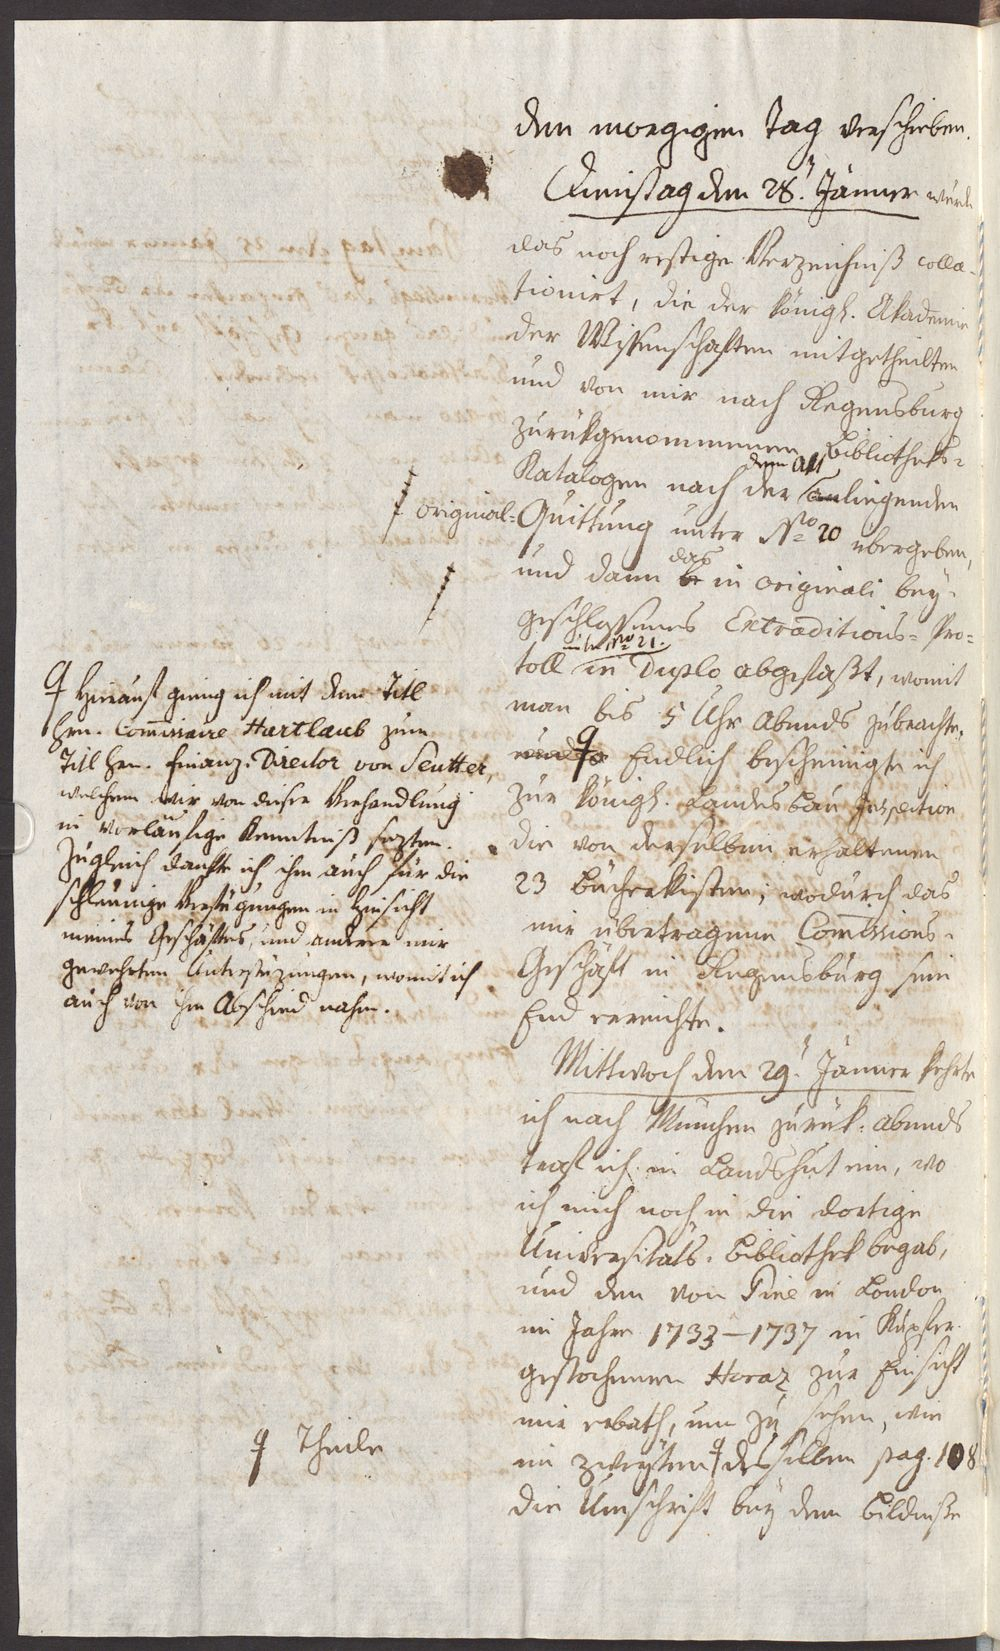 den morgigen Tag verschieben.
Dienstag den 28. Jänner wurde
das noch restige Verzeichniß colla-
tionirt, die der königl. Akademie
der Wissenschaften mitgetheilten
und von mir nach Regensburg
zurükgenommenen Bibliotheks-
dem all
Katalogen nach der anliegenden
original- Quittung unter No 20 übergeben,
das
und dann in originali bey-
geschlossenes Extraditions-Pro-
unter No 21.
toll in Duplo abgefaßt, womit
man bis 5 Uhr Abends zubrachte,
und so Endlich bescheinigte ich
zur königl. Landesbau Inspection
die von derselben erhaltenen
23 Bücherkisten; wodurch das
mir übertragene Commissions-
Geschäft in Regensburg sein
End erreichte.
Mittwoch den 29. Jänner kehrte
ich nach München zurük. Abends
traf ich in Landshut ein, wo
ich mich noch in die dortige
Universitäts-Bibliothek begab,
und den von Pine in London
im Jahre 1733–1737 in Kupfer
gestochenen Horaz zur Einsicht
mir erbath, um zu sehen, wie
im zweyten desselben pag. 108
die Umschrift bey dem Bildniße
Hierauf gieng ich mit dem Titl
Hrn. Commissaire Hartlaub zum
Titl Hrn. Finanz-Director von Seutter,
welchem wir von dieser Verhandlung
in vorläufige Kenntniß sezten.
Zugleich dankte ich ihm auch für die
schleunige Verfügungen in Hinsicht
meines Geschäftes, und andere mir
gewährten Unterstüzungen, womit ich
auch von ihm Abschied nahm.
Theile